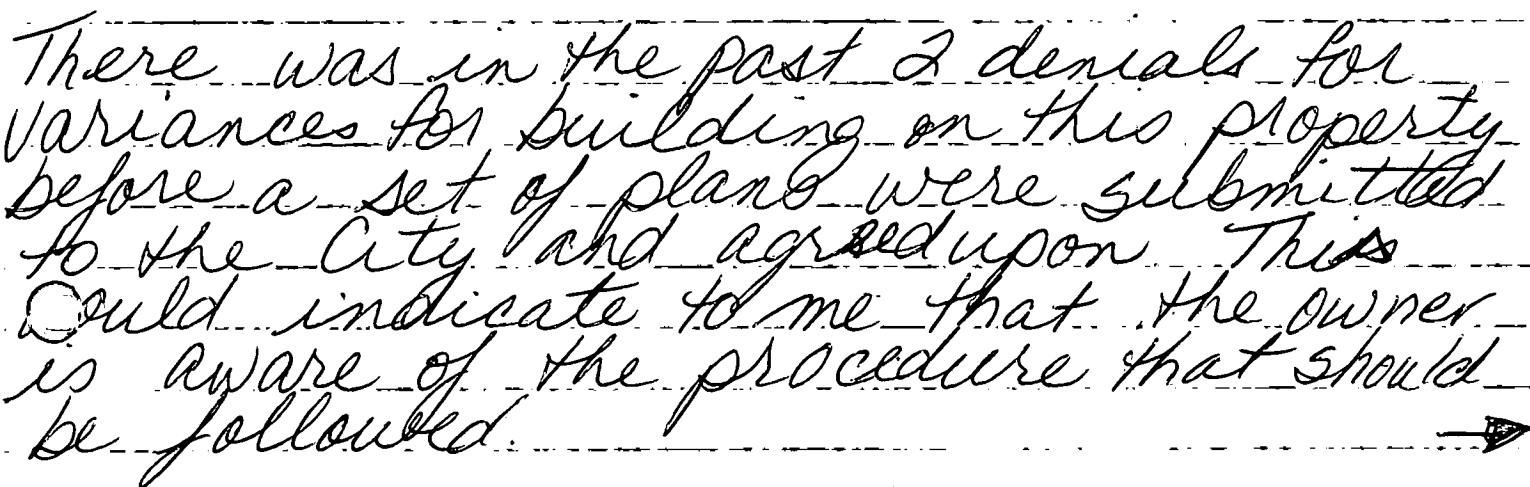 There was in the past 2 denials for
variances for building on this property
before a set of plans were submitted
to the City and agreed upon. This
would indicate to me that the owner
is aware of the procedure that should
be followed.